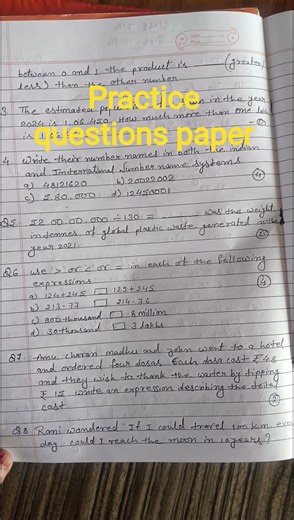 between 0 and 1, the product is (greater/
less) than the other number
Practice
questions paper
3 The estimated in the year
2024 is 1,06,450. How much more than one lakh
is
4 Write their number names in both the indian
and International number name systems
a) 48121620 b) 20022002
c) 5,80,000 d) 12450001 (4)
Q5 52,00,00,000 ÷ 130 = was the weight
in tonnes of global plastic waste generated in the
year 2021. (2)
Q6 use > or < or = in each of the following
expressions (4)
a) 124+245 □ 129+245
b) 213-77 □ 214-76
c) 800 thousand □ 8 million
d) 30 thousand □ 3 lakhs
Q7 Amu, charan, madhu and john went to a hotel
and ordered four dosas. Each dosa cost ₹ 43
and they wish to thank the waiter by tipping
₹ 15 write an expression describing the total
cost (2)
Q8 Rani wondered "If I could travel 100 km every
day could I reach the moon in 10 years?